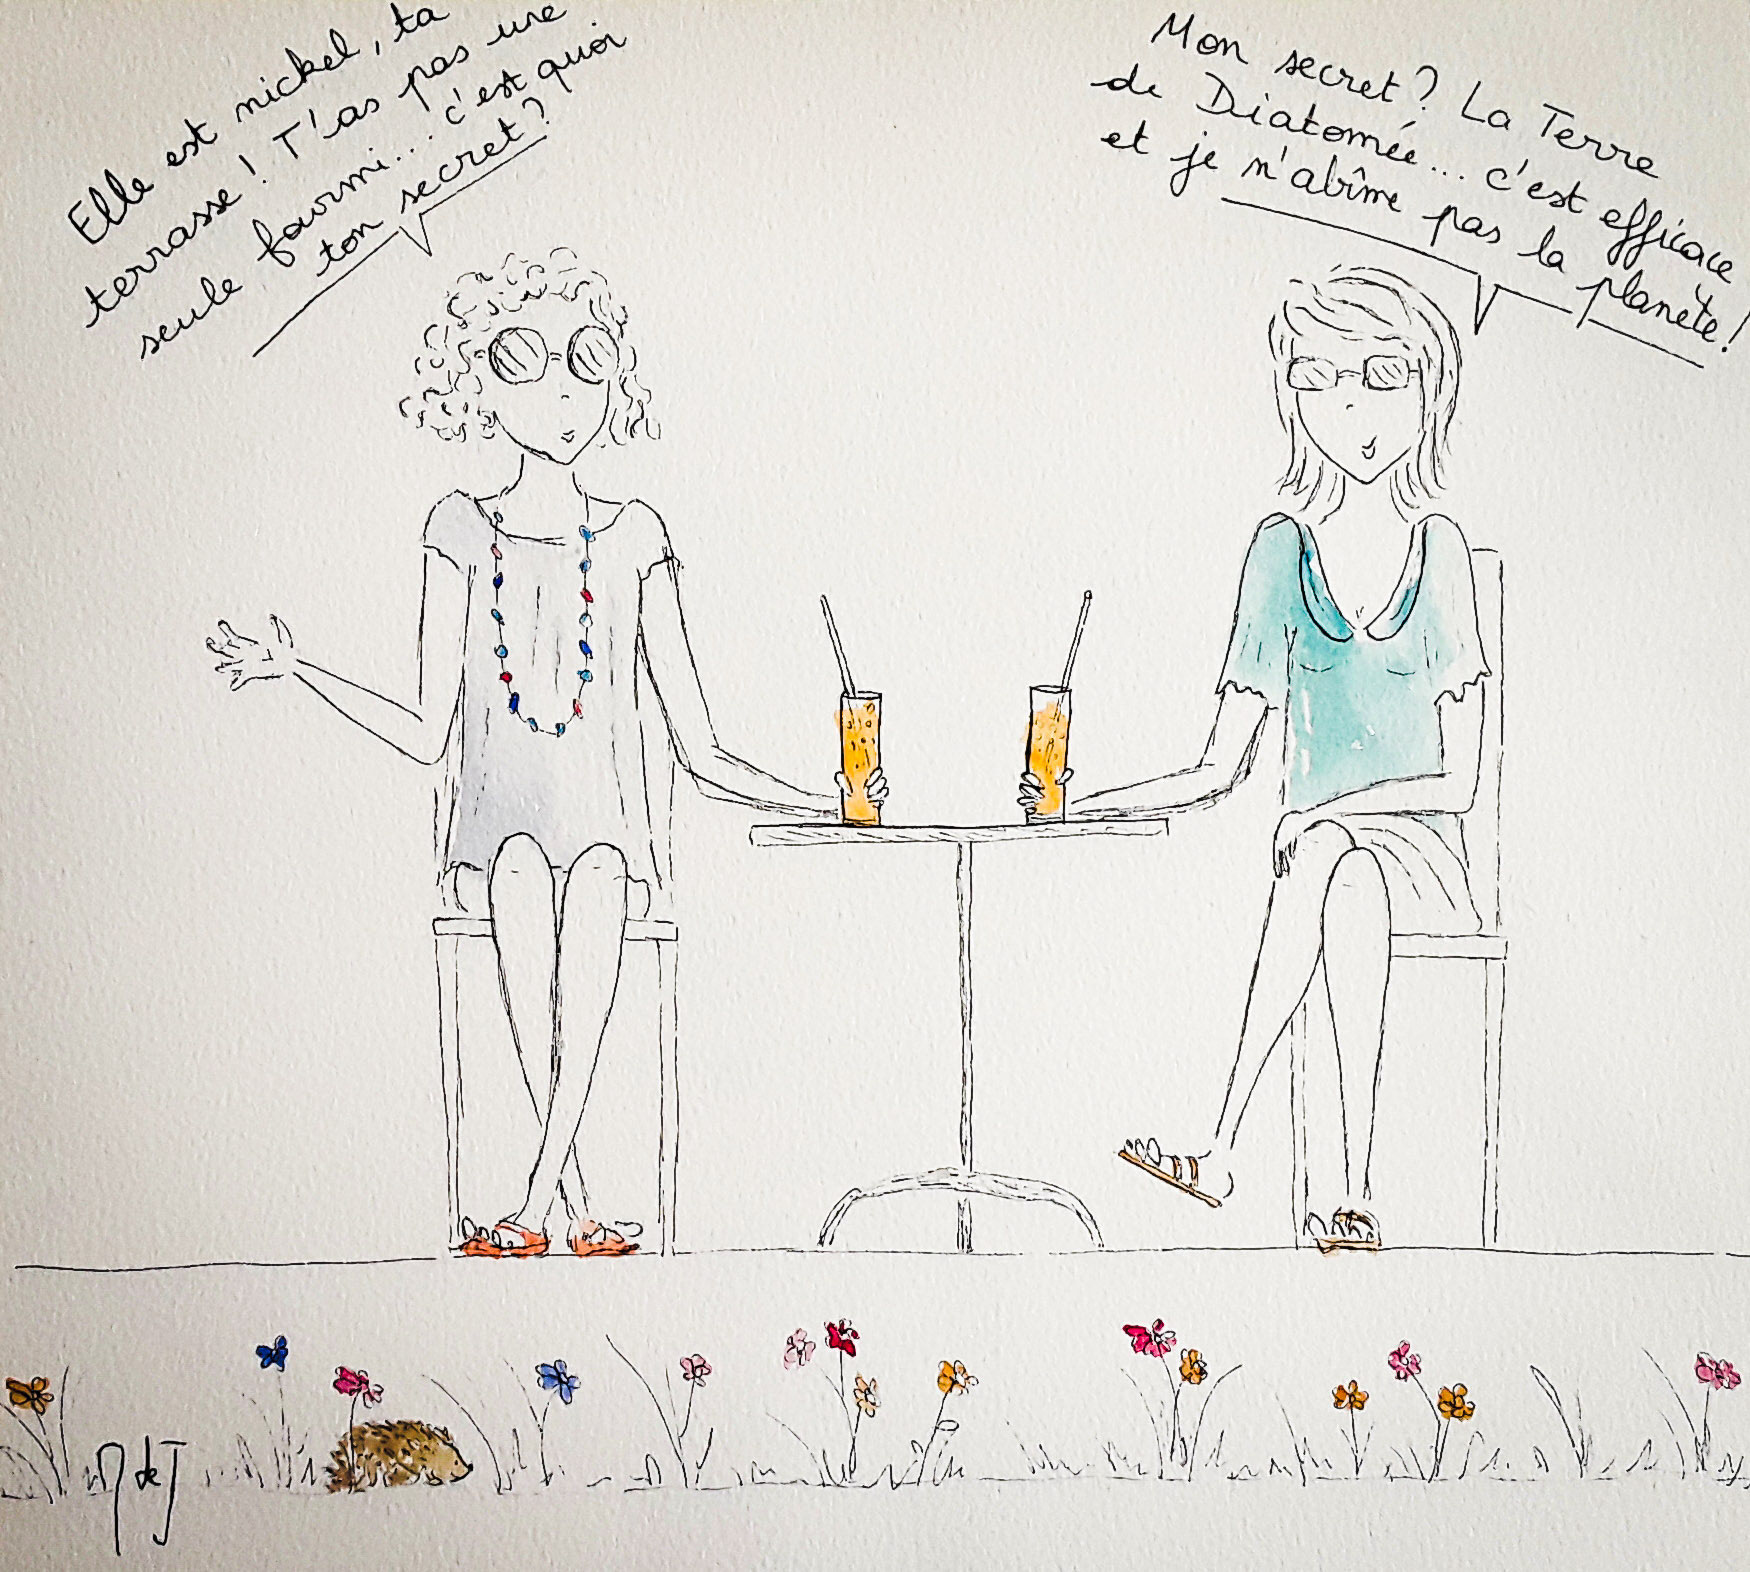 Elle est nickel, ta
terrasse ! T'as pas une
seule fourmi... c'est quoi
ton secret ?
Mon secret ? La Terre
de Diatomée... c'est efficace
et je n'abîme pas la planète !
M de J